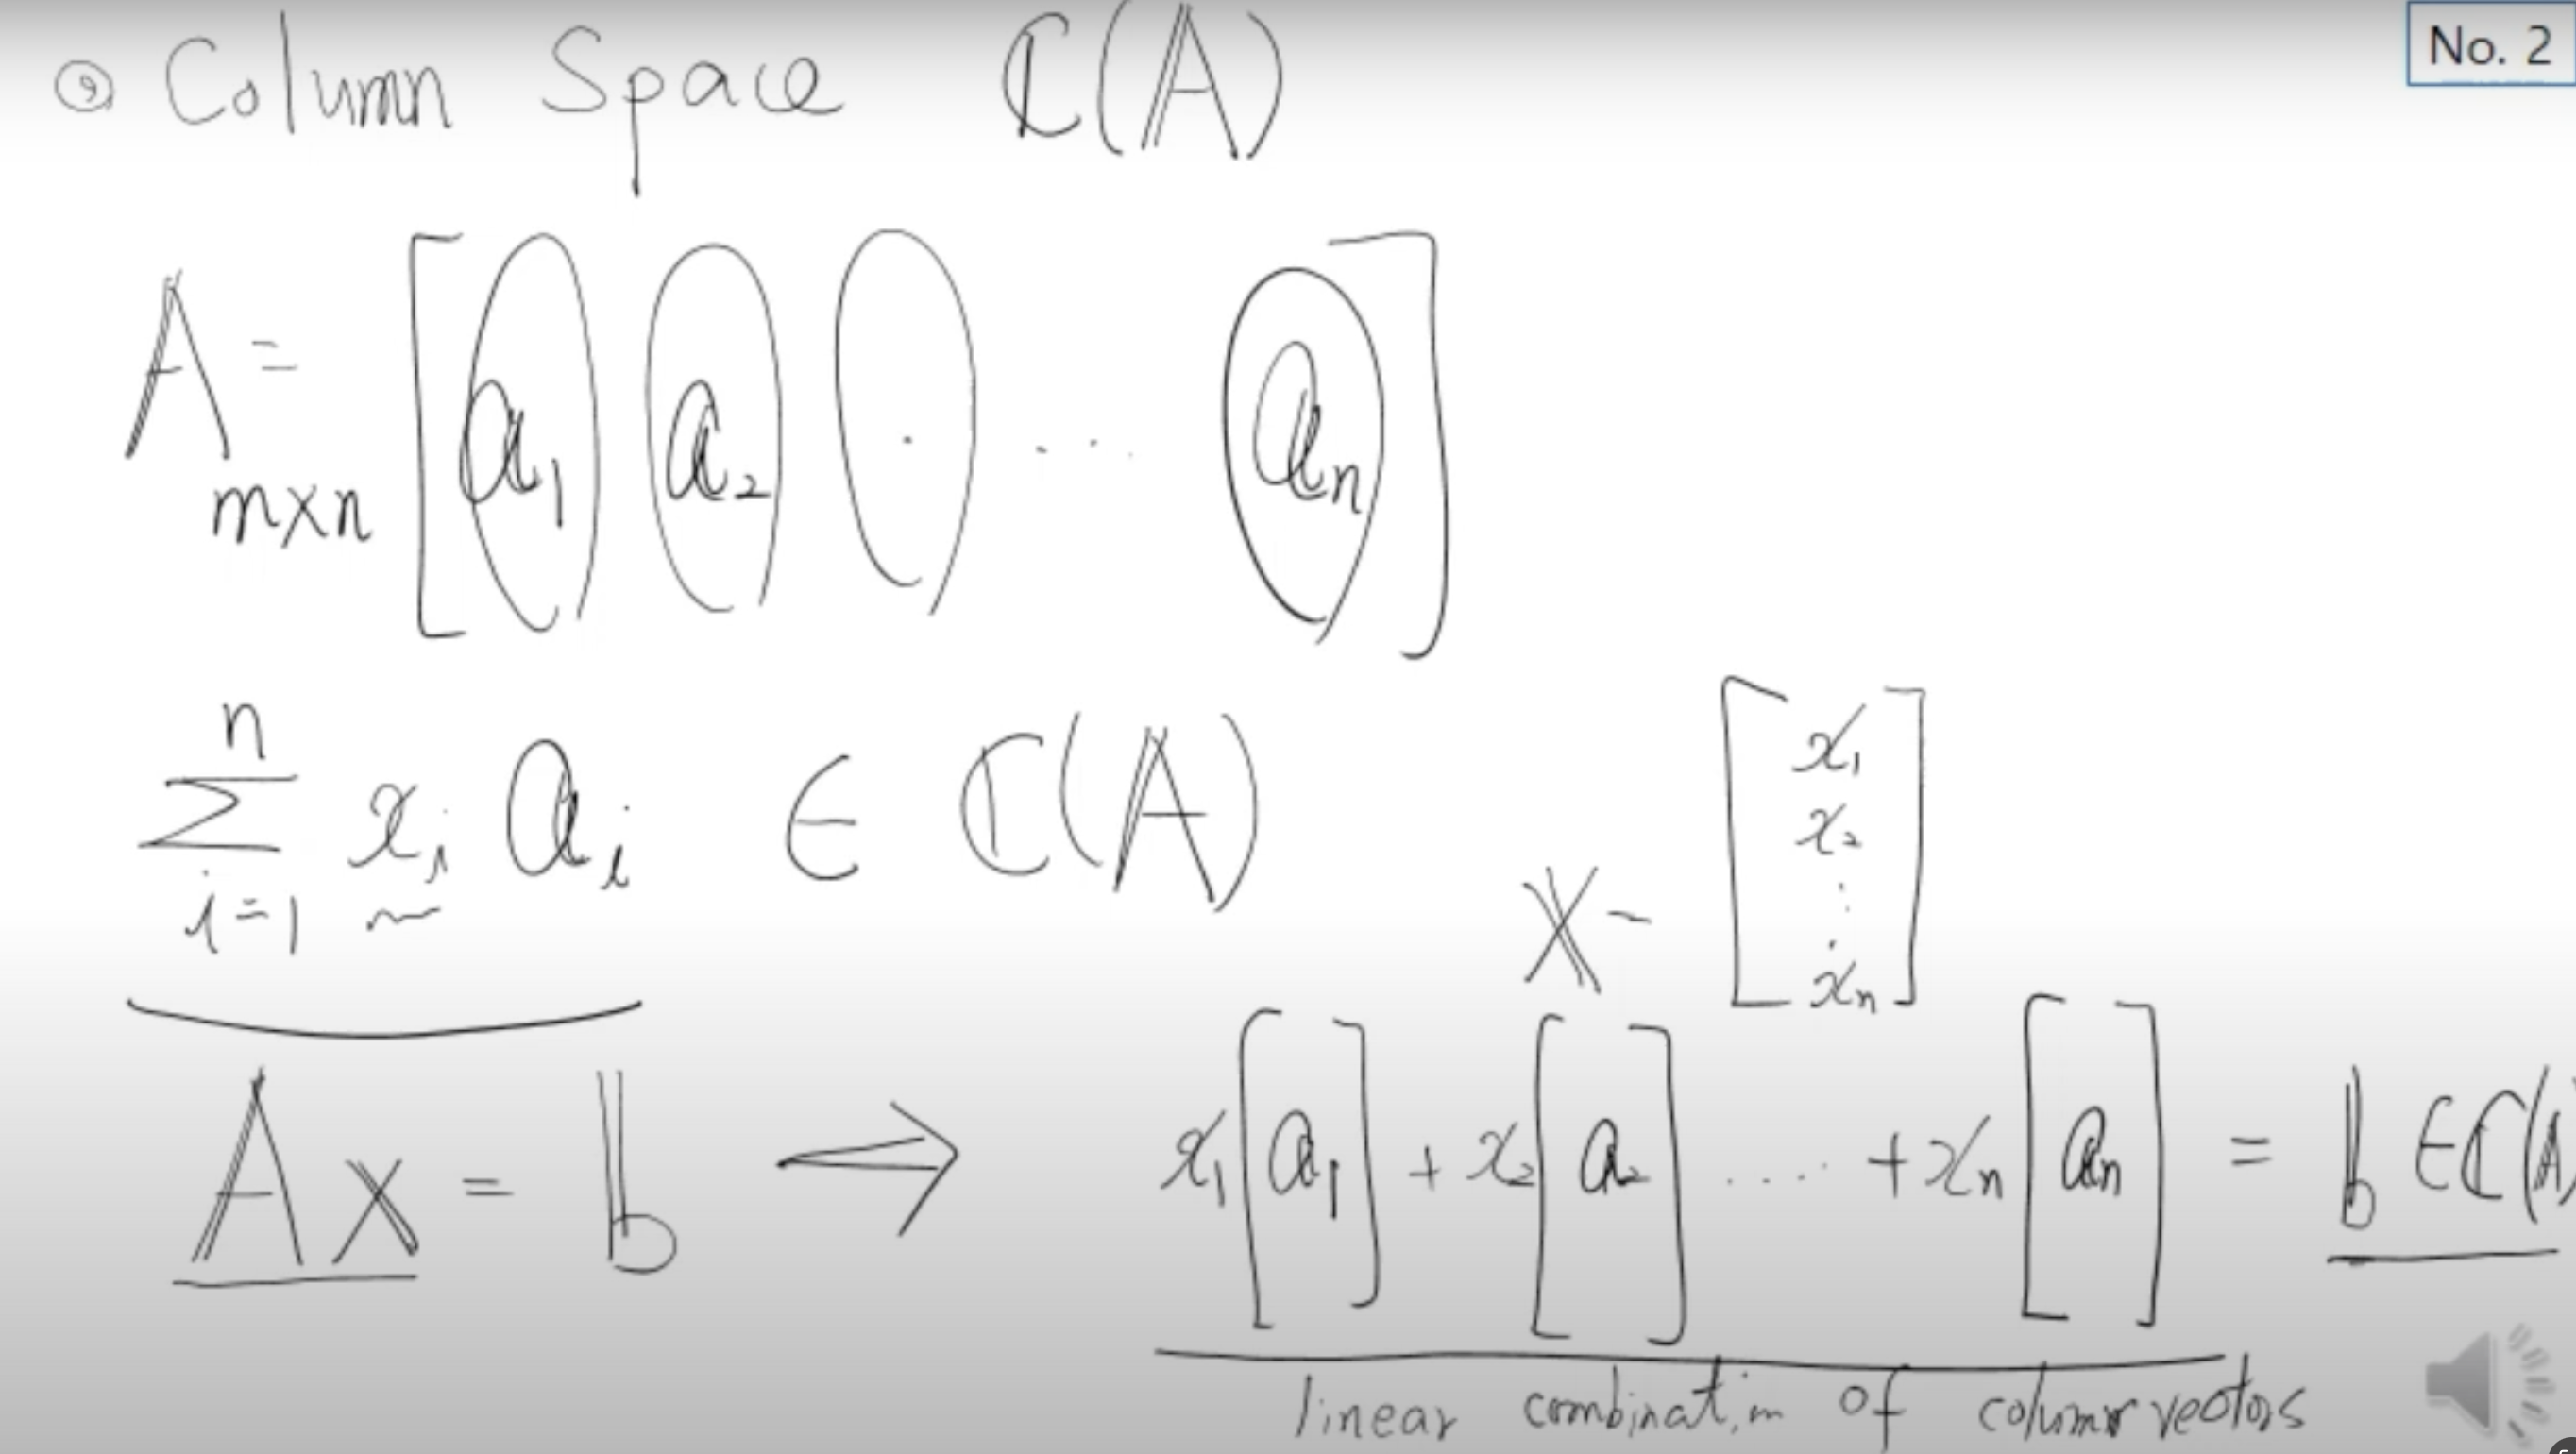 No. 2
Column Space ℂ(A)
A = [a₁ a₂ · ... aₙ]
m×n
n
∑ xᵢ aᵢ ∈ ℂ(A)
i=1
x = [x₁ x₂ ⋮ xₙ]
Ax = b ⇒ x₁[a₁] + x₂[a₂] .... + xₙ[aₙ] = b ∈ ℂ(A)
linear combination of column vectors